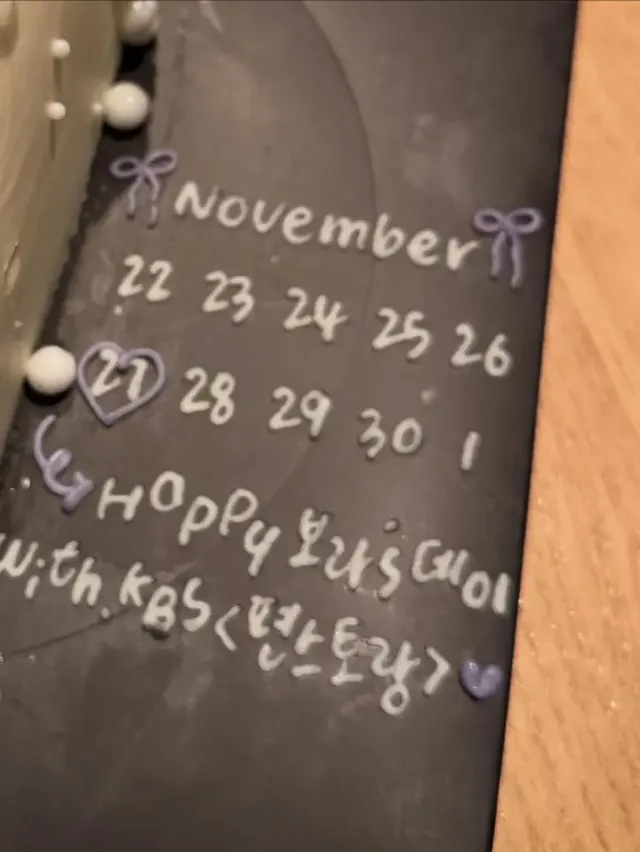 November
22 23 24 25 26
27 28 29 30 1
Happy 보라's 데이
With. KBS <편스토랑>